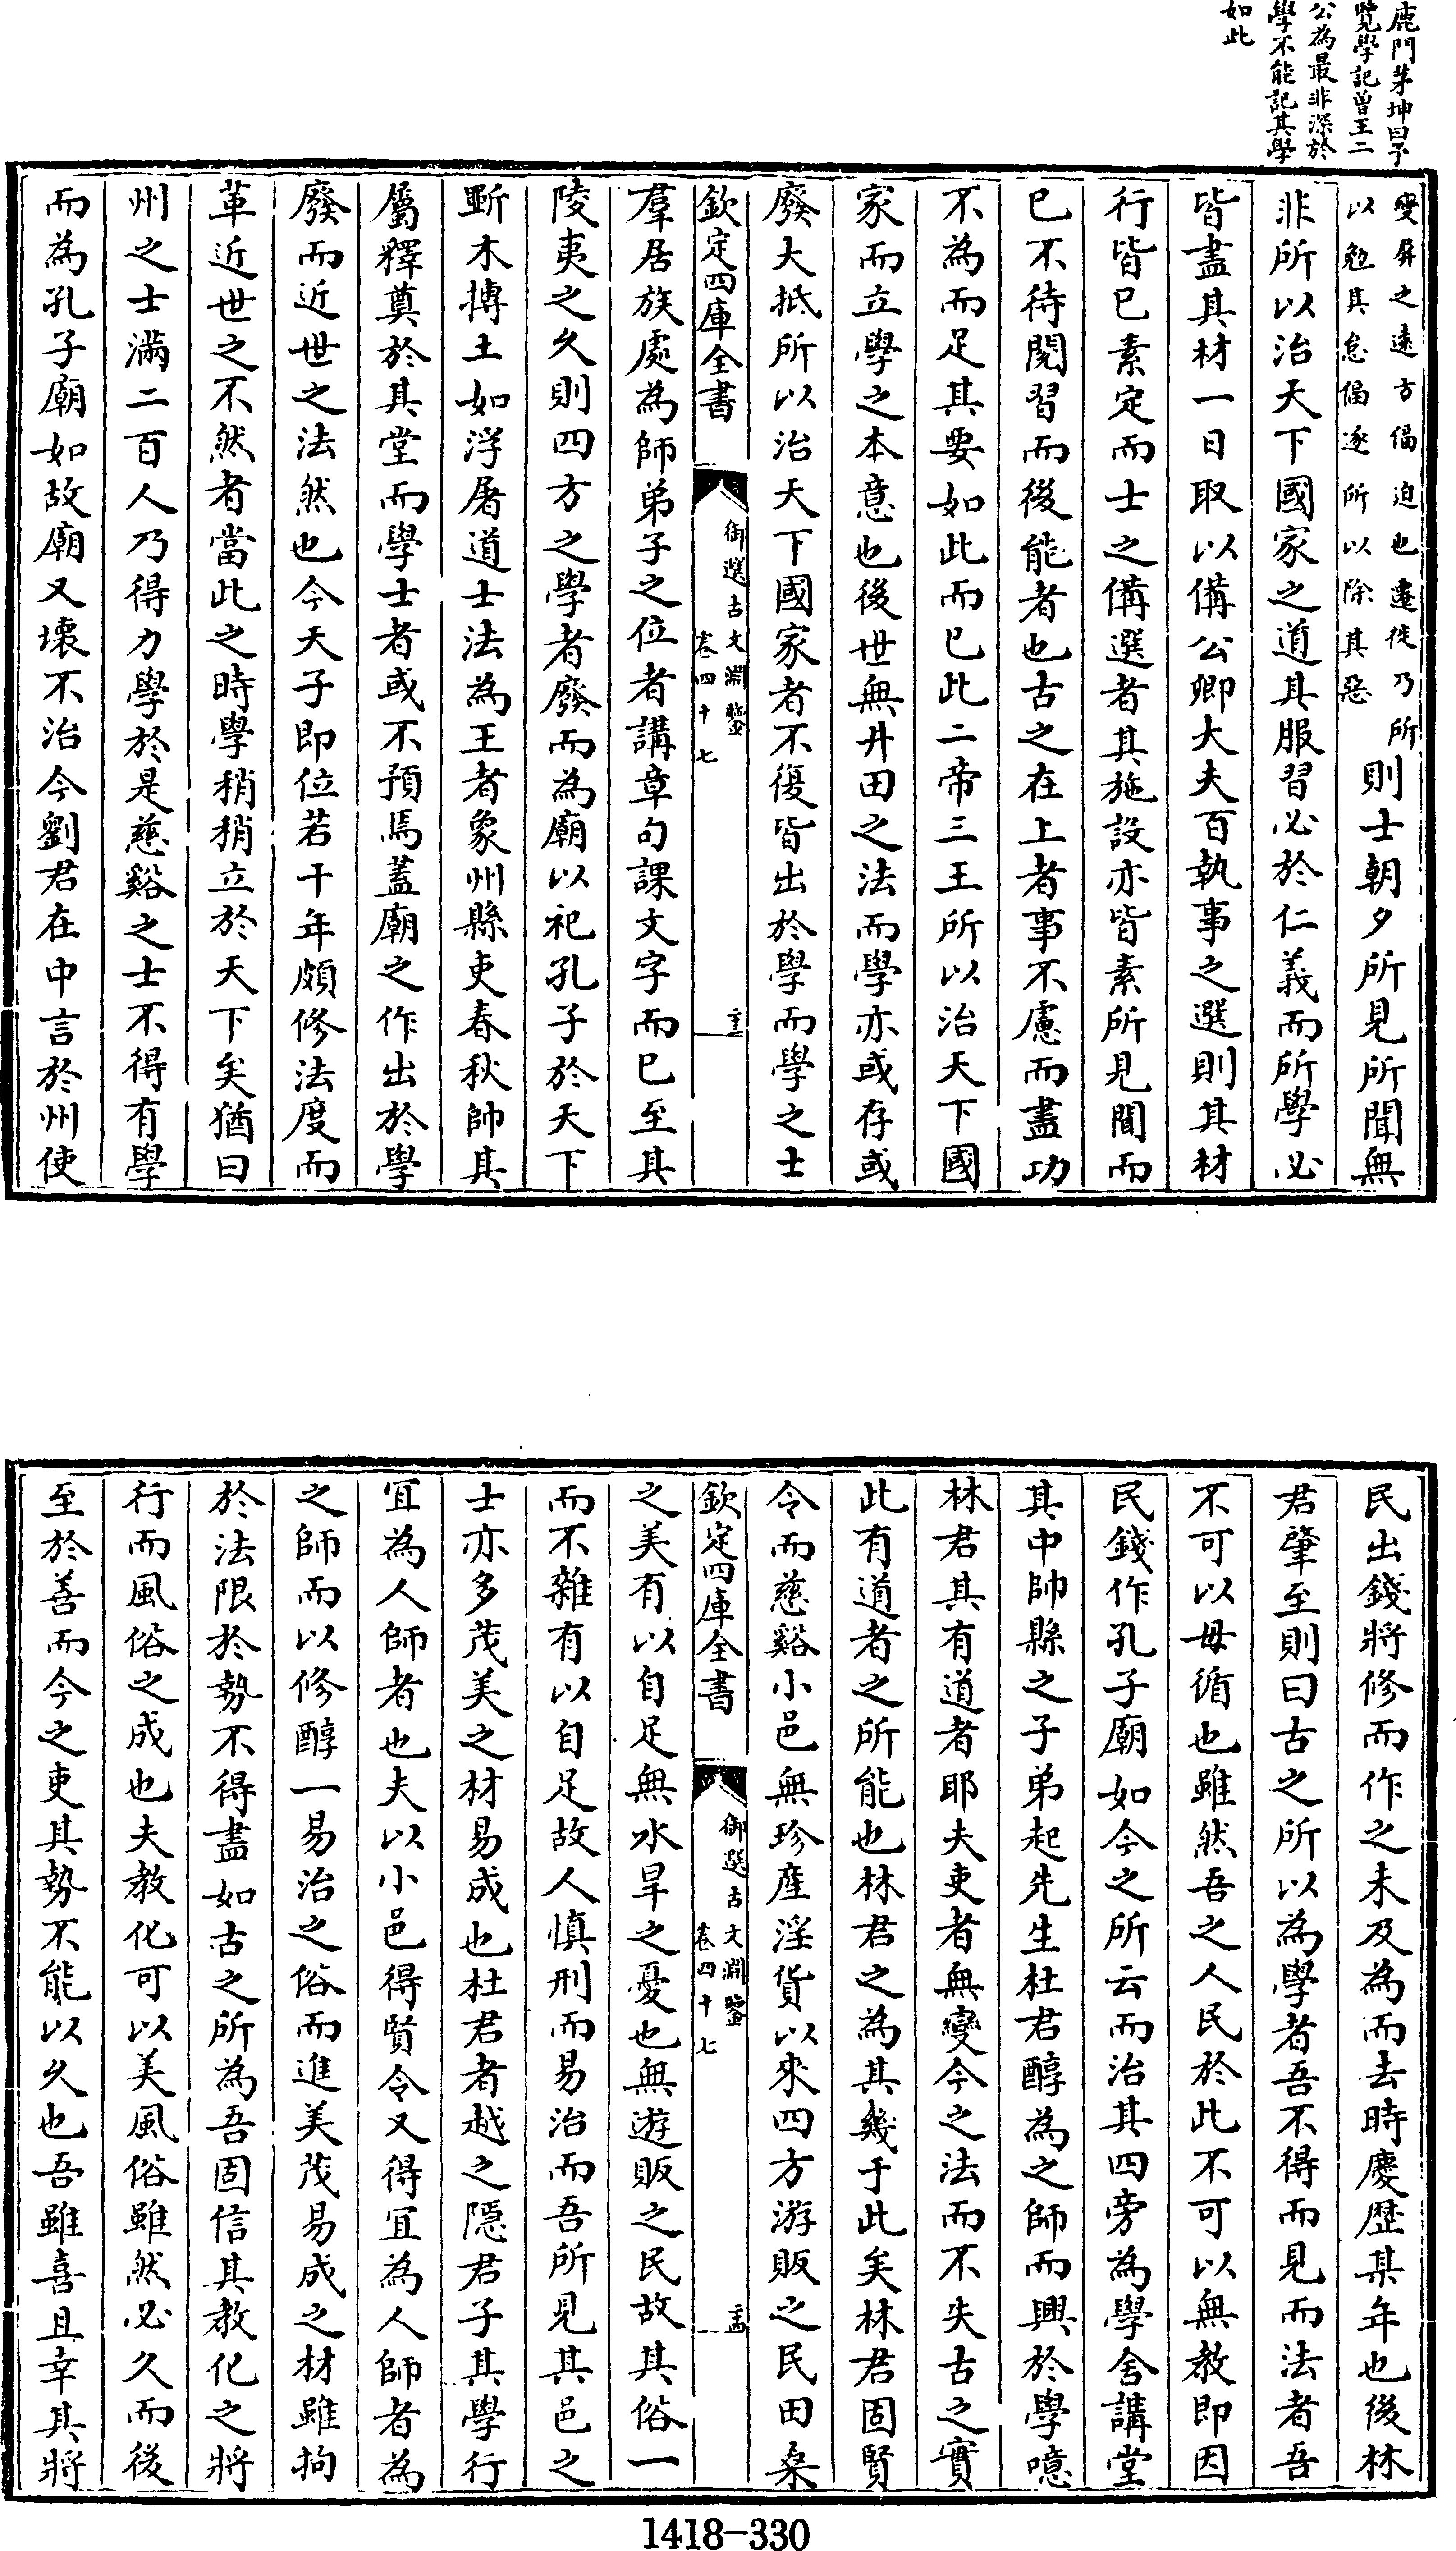 鹿門茅坤曰予
覽學記曽王二
公為最非深於
學不能記其學
如此
變屏之逺方偪迫也遷徙乃所
以勉其怠偪逐所以除其惡
則士朝夕所見所聞無
非所以治天下國家之道其服習必於仁義而所學必
皆盡其材一日取以備公卿大夫百執事之選則其材
行皆已素定而士之備選者其施設亦皆素所見聞而
已不待閱習而後能者也古之在上者事不慮而盡功
不為而足其要如此而已此二帝三王所以治天下國
家而立學之本意也後世無井田之法而學亦或存或
廢大抵所以治天下國家者不復皆出於學而學之士
欽定四庫全書
御選古文淵鑒
卷四十七
羣居族處為師弟子之位者講章句課文字而已至其
陵夷之久則四方之學者廢而為廟以祀孔子於天下
斲木摶土如浮屠道士法為王者象州縣吏春秋帥其
屬釋奠於其堂而學士者或不預焉蓋廟之作出於學
廢而近世之法然也今天子即位若干年頗修法度而
革近世之不然者當此之時學稍稍立於天下矣猶曰
州之士滿二百人乃得力學於是慈谿之士不得有學
而為孔子廟如故廟又壊不治今劉君在中言於州使
民出錢將修而作之未及為而去時慶歴某年也後林
君肇至則曰古之所以為學者吾不得而見而法者吾
不可以毋循也雖然吾之人民於此不可以無教即因
民錢作孔子廟如今之所云而治其四旁為學舍講堂
其中帥縣之子弟起先生杜君醇為之師而興於學噫
林君其有道者耶夫吏者無變今之法而不失古之實
此有道者之所能也林君之為其幾于此矣林君固賢
令而慈谿小邑無珍産淫貨以來四方游販之民田桑
欽定四庫全書
御選古文淵鑒
卷四十七
之美有以自足無水旱之憂也無遊販之民故其俗一
而不雜有以自足故人慎刑而易治而吾所見其邑之
士亦多茂美之材易成也杜君者越之隱君子其學行
宜為人師者也夫以小邑得賢令又得宜為人師者為
之師而以修醇一易治之俗而進美茂易成之材雖拘
於法限於勢不得盡如古之所為吾固信其教化之將
行而風俗之成也夫教化可以美風俗雖然必久而後
至於善而今之吏其勢不能以久也吾雖喜且幸其將
1418-330